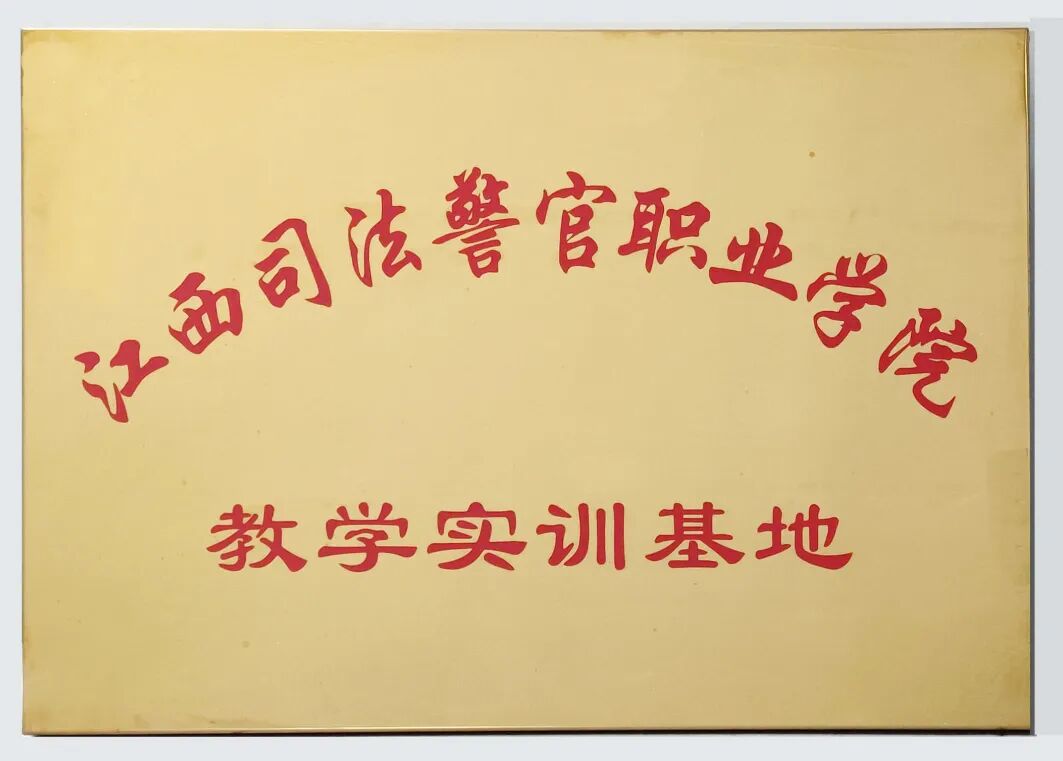 江西司法警官职业学院
教学实训基地